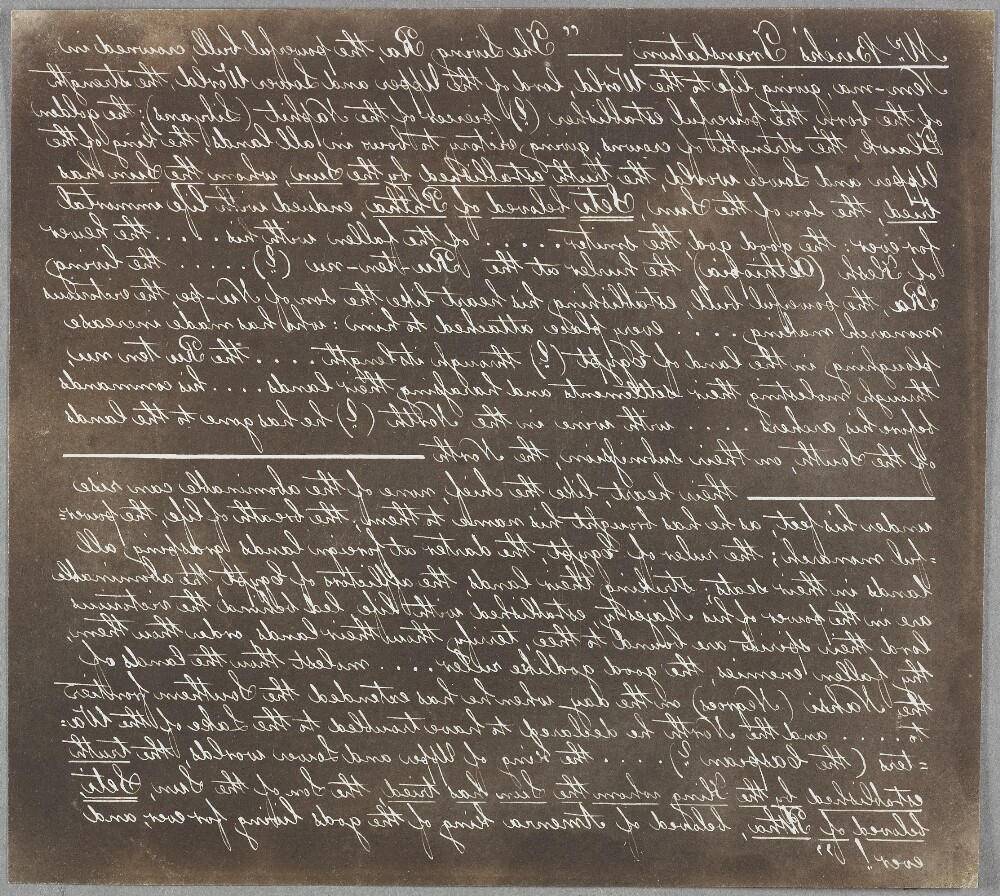 Mr. Birch's Translation — "The living Ra, the powerful bull crowned in
Nem-ma, giving life to the World, lord of the Upper and Lower World, the strength
of the born the powerful establisher (?) pierces of the Naphit (Libyans), the golden
Hawk, the strength of crowns giving victory to bow in all lands, the King of the
Upper and Lower world, the truth established by the Sun, whom the Sun has
tried, the son of the Sun, Seti beloved of Pthha, endued with life immortal
for ever: the good god the smiter ..... of the fallen with his ..... the hewer
of Flesh (Aethiobia) the hurler at the Ru-ten-nu (?) ..... the living
Ra, the powerful bull, establishing his heart like the son of Nu-pe, the victorious
monarch making ..... every place attached to him: who has made increase
ploughing in the land of Egypt (?) through its length ..... the Ru ten nu,
through insulting their settlements and harassing their lands .... his commands
before his archers ..... with wine in the North (?) he has gone to the lands
of the South, on, their submission, the North
their heart, like the chief, none of the abominable can rise
under his feet, as he has brought his name to them, the breath of life, the power=
=ful monarch; the ruler of Egypt the darter at foreign lands grasping all
lands in their seats: striking their lands, the afflicters of Egypt the abominable
are in the power of his Majesty, established with life, led behind the victorious
lord their spirits are bound to thee, terrify thou their lands order thou them,
thy fallen enemies, the good godlike ruler .... molest thou the lands of
the Nahsi (Negroes) on the day when he has extended the Southern frontier
to .... and the North he declared to have troubled to the Lake of the Wa=
=ters (the Caspian ?) ..... the king of Upper and Lower worlds, the truth
established by the King whom the Sun has tried the Son of the Sun, Seti
beloved of Ptha, beloved of Amenra king of the gods living for ever, and
ever!"